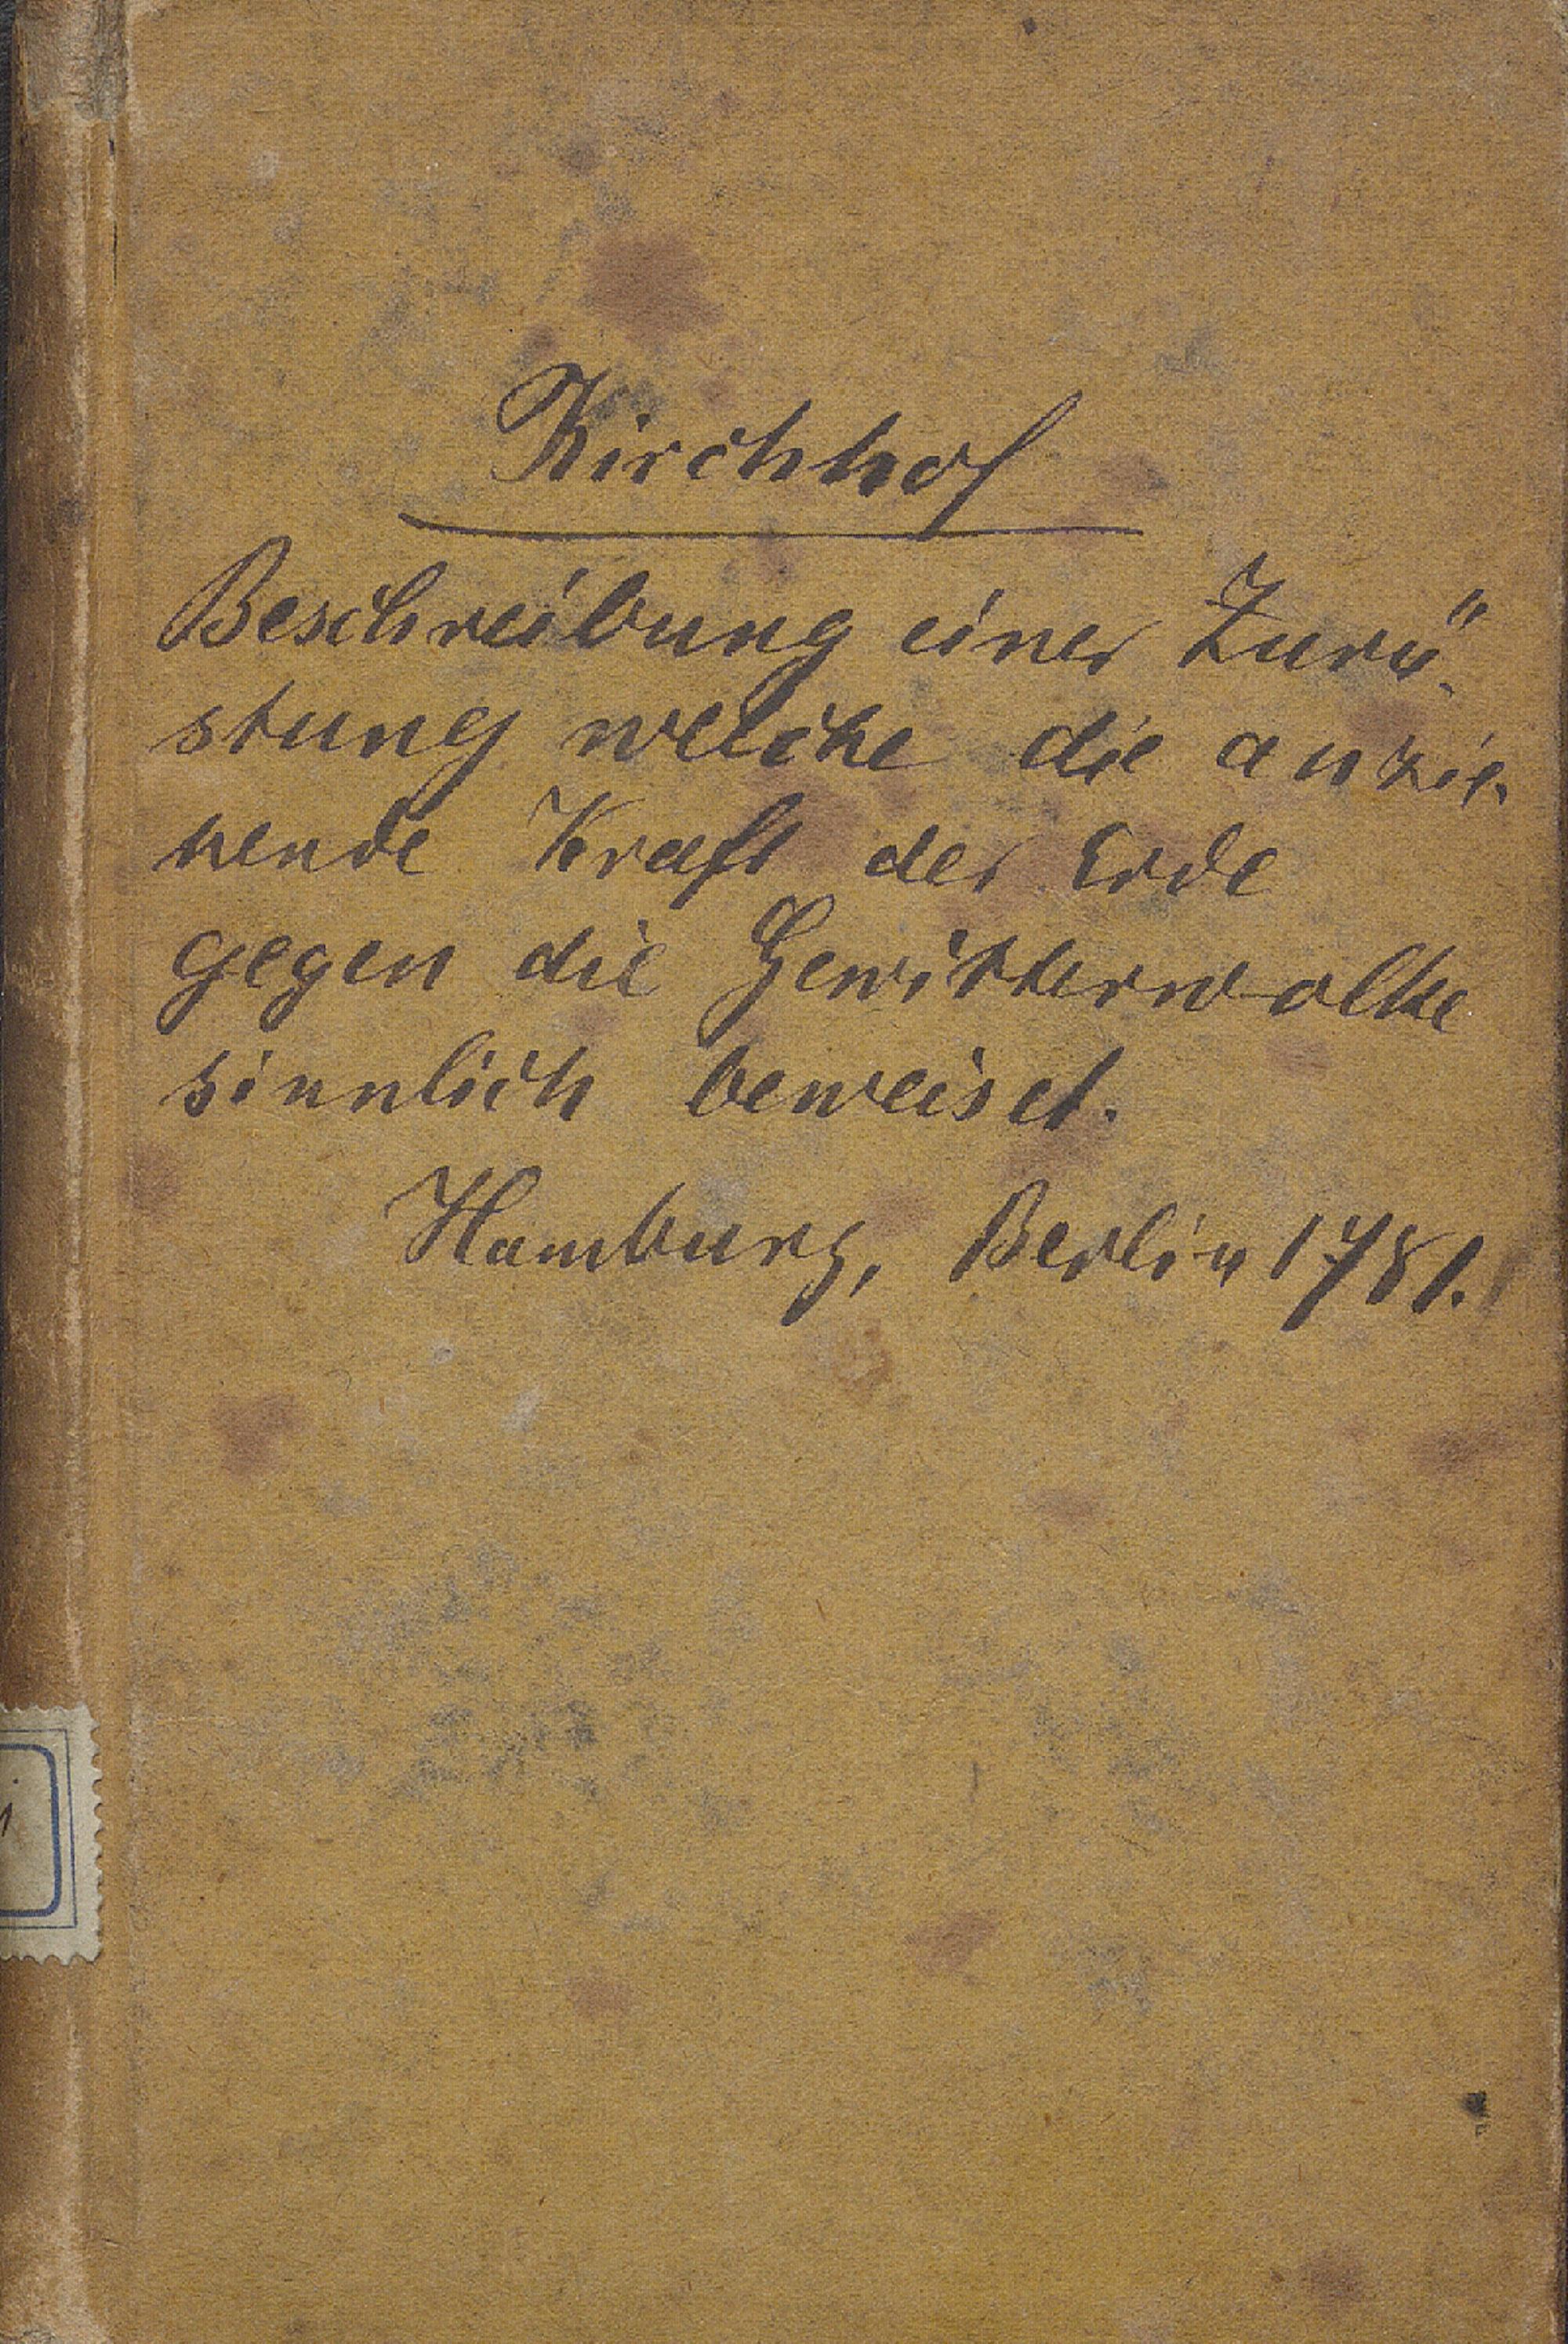 Kirchhof
Beschreibung einer Zurü-
stung welche die anzie-
hende Kraft der Erde
gegen die Gewitterwolke
sinnlich beweiset.
Hamburg, Berlin 1781.